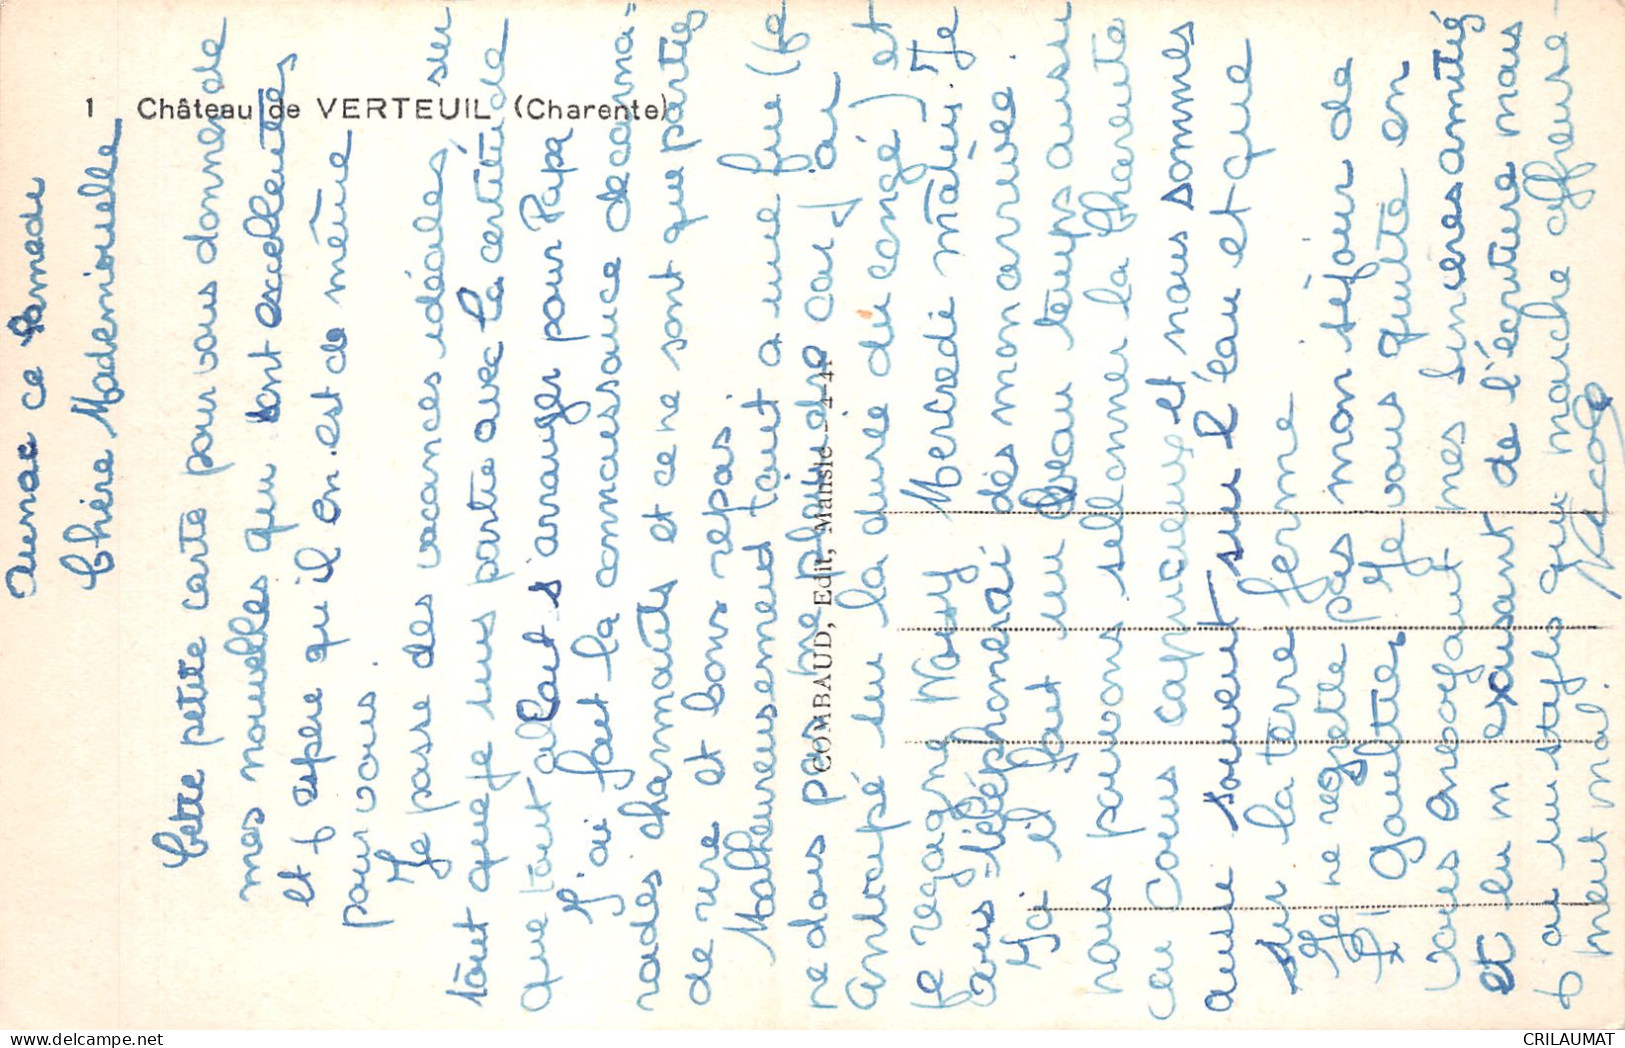 1 Château de VERTEUIL (Charente)
COMBAUD, Edit, Mansle -4-41
Aunac ce Samedi
Chère Mademoiselle
Cette petite carte pour vous donner de
mes nouvelles qui sont excellentes
et j'espère qu'il en est de même
pour vous.
Je passe des vacances idéales sur
tout que je suis partie avec la certitude
que tout allait s'arranger pour Papa
J'ai fait la connaissance de cama=
rades charmants et ce ne sont que parties
de rire et bons repas.
Malheureusement tout a une fin (je
ne dois pas me plaindre car j'ai
anticipé sur la durée du congé) et
je regagne Mercredi matin. Je
vous téléphonerai dès mon arrivée.
Ici il fait un beau temps aussi
nous pouvons sillonner la Charente
au cours capricieux et nous sommes
aussi souvent sur l'eau et que
sur la terre ferme
Je ne regrette pas mon séjour de
Gaultier. Je vous quitte en
vous envoyant mes sincères amitiés
et en m'excusant de l'écriture mais
j'ai un stylo qui marche affreuse-
ment mal.
Nicole
CRILAUMAT